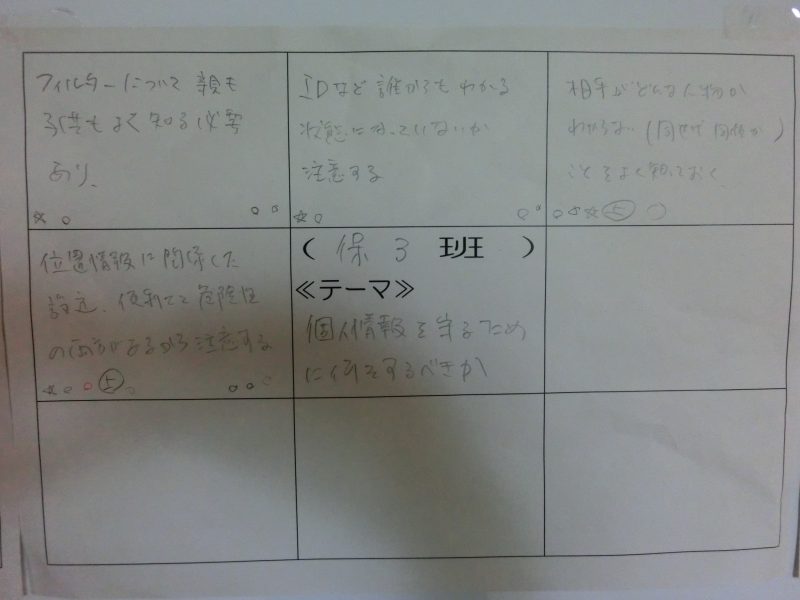 フィルターについて 親も
子供もよく知る必要
あり、
☆ ○ ○ ○
IDなど誰からもわかる
状態になっていないか
注意する
☆ ○ ○ ○
相手がどんな人物か
わからない(同せで同性か)
ことをよく知っておく
○ ○ ☆ ⑤ ○
位置情報に関係した
設定、便利さと危険性
の両方があるから注意する
☆ ○ ○ ⑤ ○ ○ ○ ○
( 保 3 班 )
≪テーマ≫
個人情報を守るため
に何をするべきか